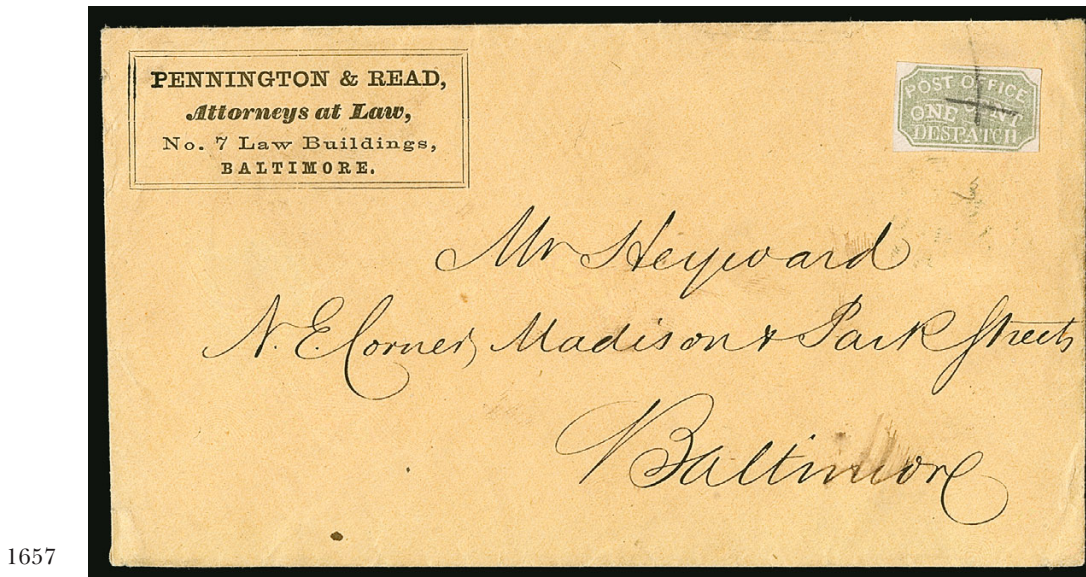 PENNINGTON & READ,
Attorneys at Law,
No. 7 Law Buildings,
BALTIMORE.
POST OFFICE
ONE CENT
DESPATCH
Mr Heyward
N. E. Corner, Madison & Park Streets
Baltimore
1657